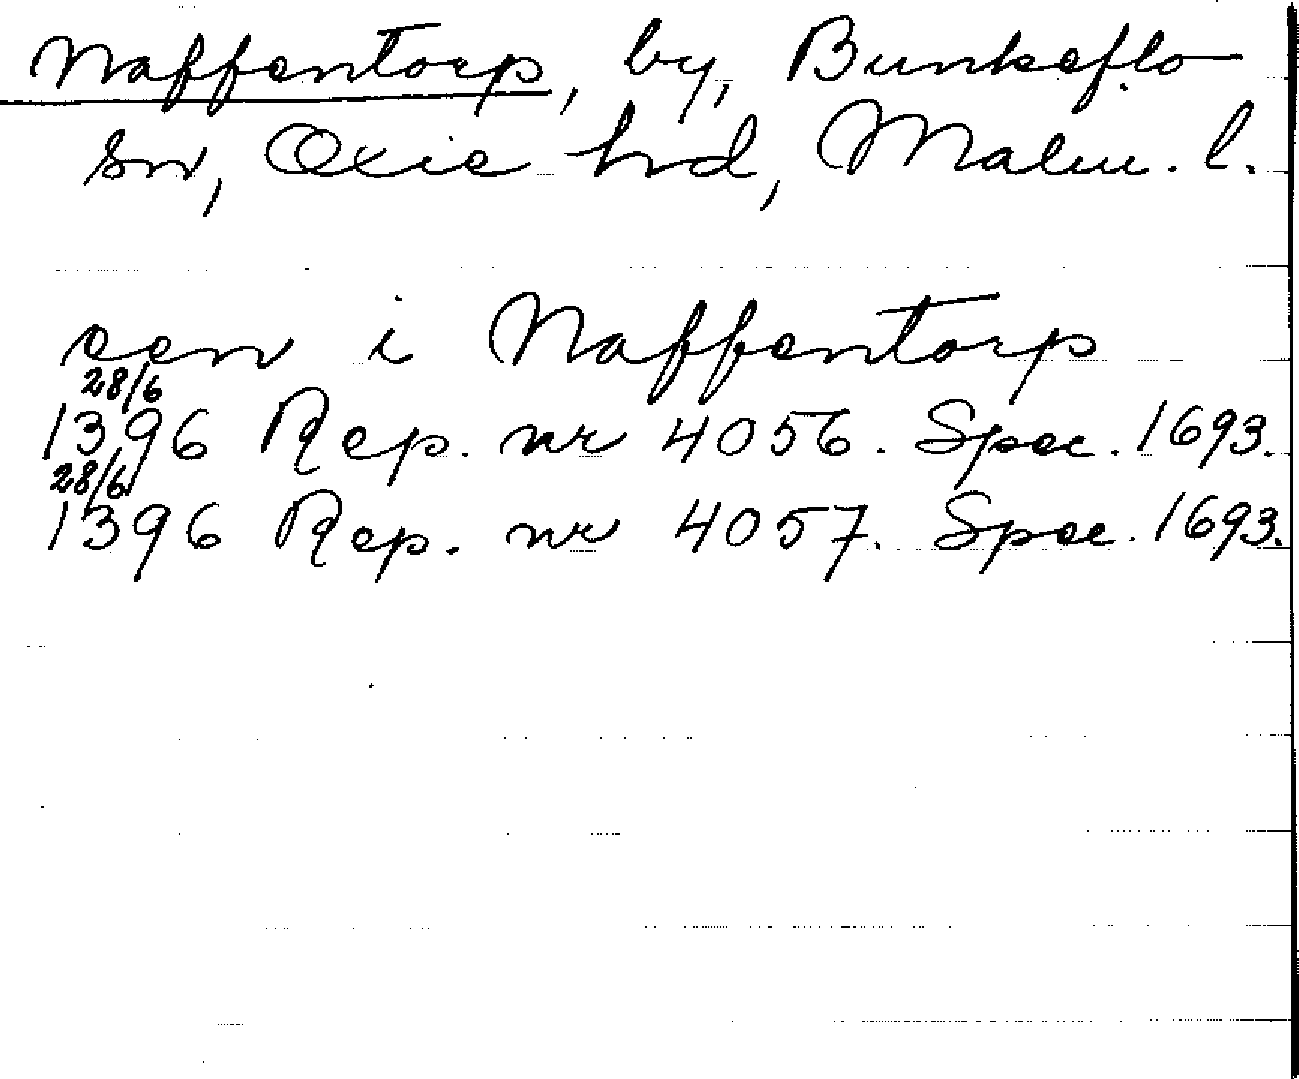 Naffentorp, by, Bunkeflo
sn, Oxie hd, Malm. l.
een i Naffentorp
28/6
1396 Rep. nr 4056. Spec. 1693.
28/6
1396 Rep. nr 4057. Spec. 1693.